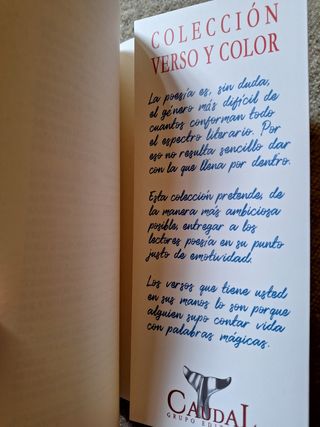 COLECCIÓN
VERSO Y COLOR
La poesía es, sin duda,
el género más difícil de
cuantos conforman todo
el espectro literario. Por
eso no resulta sencillo dar
con la que llena por dentro.
Esta colección pretende, de
la manera más ambiciosa
posible, entregar a los
lectores poesía en su punto
justo de emotividad.
Los versos que tiene usted
en sus manos lo son porque
alguien supo contar vida
con palabras mágicas.
CAUDAL
GRUPO